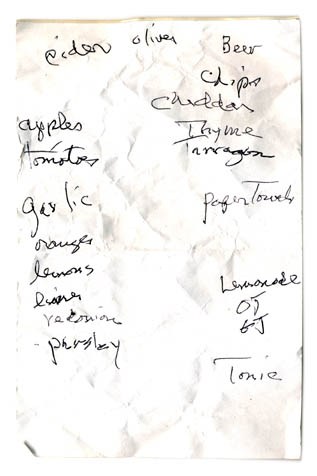 cider
olives
Beer
chips
cheddar
apples
Thyme
tomatoes
Tarragon
garlic
paper Towels
oranges
lemons
Lemonade
limes
OJ
red onion
GJ
parsley
Tonic